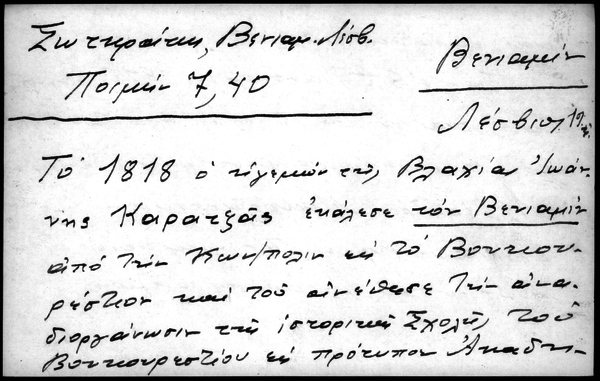 Σωτηράκη, Βενιαμ. Λέσβ.
Ποιμήν 7, 40
Βενιαμίν
Λέσβιος
Τό 1818 ὁ ἡγεμών τῆς Βλαχίας Ἰωάν-
νης Καρατζᾶς ἐκάλεσε τόν Βενιαμίν
ἀπό τήν Κων/πολιν εἰς τό Βουκου-
ρέστιον καί τοῦ ἀνέθεσε τήν ἀνα-
διοργάνωσιν τῆς ἱστορικῆς Σχολῆς τοῦ
Βουκουρεστίου εἰς πρότυπον Ἀκαδη-